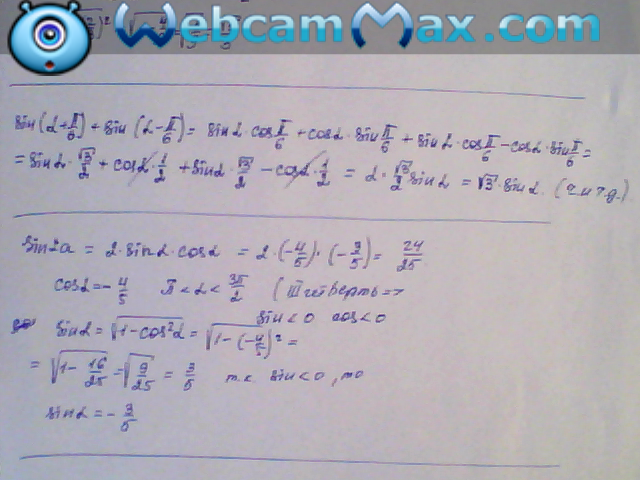 WebcamMax.com
sin(α+π/6) + sin(α-π/6) = sinα·cosπ/6 + cosα·sinπ/6 + sinα·cosπ/6 - cosα·sinπ/6 =
= sinα·√3/2 + cosα·1/2 + sinα·√3/2 - cosα·1/2 = 2·√3/2 sinα = √3·sinα. (ч.и т.д.)
sin2a = 2·sinα·cosα = 2·(-4/5)·(-3/5) = 24/25
cosα = -4/5 π<α<3π/2 (III четверть =>
sin<0 cos<0
sinα = √1-cos²α = √1-(-4/5)² =
= √1-16/25 = √9/25 = 3/5 т.к. sin<0, то
sinα = -3/5